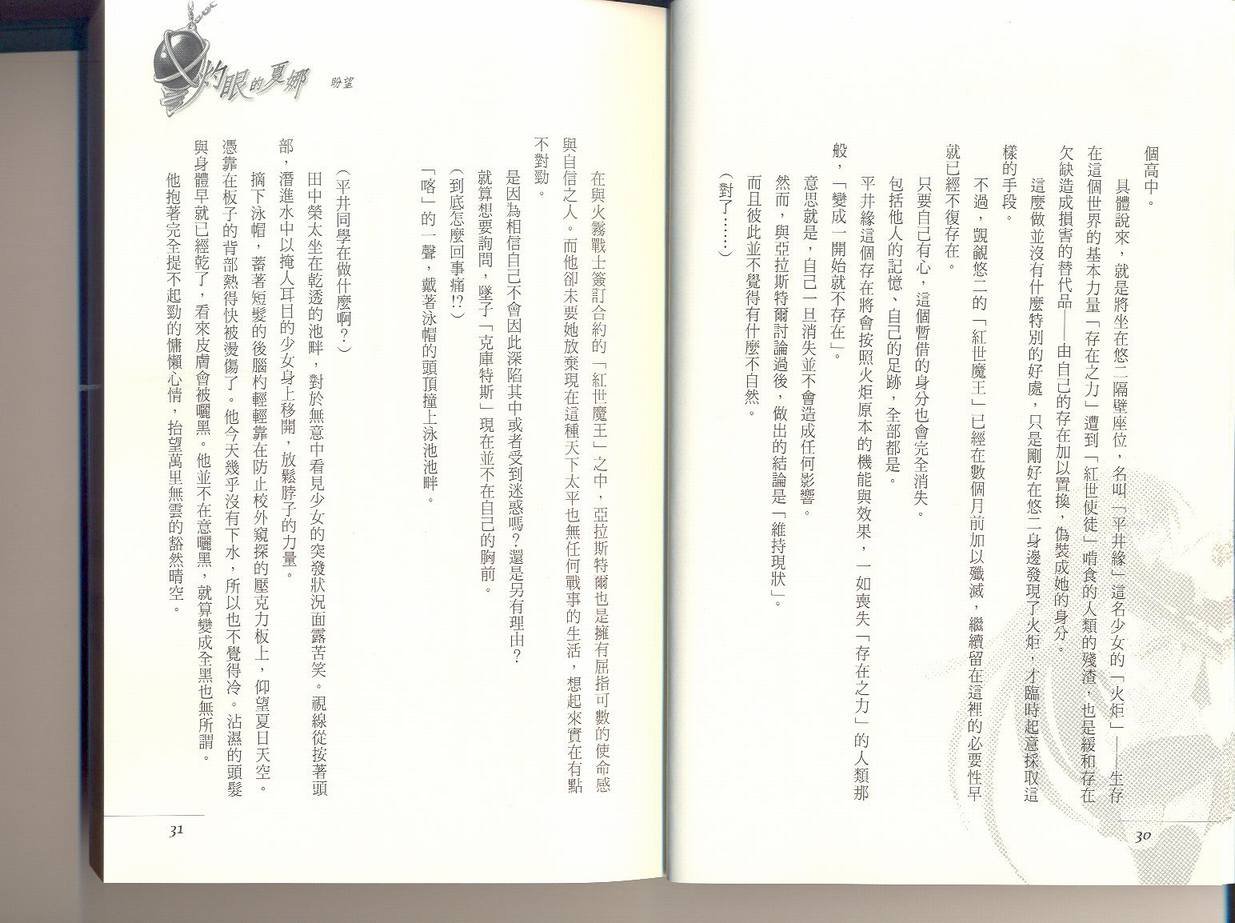 個高中。
具體說來，就是將坐在悠二隔壁座位，名叫「平井緣」這名少女的「火炬」——生存
在這個世界的基本力量「存在之力」遭到「紅世使徒」啃食的人類的殘渣，也是緩和存在
欠缺造成損害的替代品——由自己的存在加以置換，偽裝成她的身分。
這麼做並沒有什麼特別的好處，只是剛好在悠二身邊發現了火炬，才臨時起意採取這
樣的手段。
不過，覬覦悠二的「紅世魔王」已經在數個月前加以殲滅，繼續留在這裡的必要性早
就已經不復存在。
只要自己有心，這個暫借的身分也會完全消失。
包括他人的記憶、自己的足跡，全部都是。
平井緣這個存在將會按照火炬原本的機能與效果，一如喪失「存在之力」的人類那
般，「變成一開始就不存在」。
意思就是，自己一旦消失並不會造成任何影響。
然而，與亞拉斯特爾討論過後，做出的結論是「維持現狀」。
而且彼此並不覺得有什麼不自然。
（對了……）
30
灼眼的夏娜 盼望
在與火霧戰士簽訂合約的「紅世魔王」之中，亞拉斯特爾也是擁有屈指可數的使命感
與自信之人。而他卻未要她放棄現在這種天下太平也無任何戰事的生活，想起來實在有點
不對勁。
是因為相信自己不會因此深陷其中或者受到迷惑嗎？還是另有理由？
就算想要詢問，墜子「克庫特斯」現在並不在自己的胸前。
（到底怎麼回事痛!?）
「喀」的一聲，戴著泳帽的頭頂撞上泳池池畔。
（平井同學在做什麼啊？）
田中榮太坐在乾透的池畔，對於無意中看見少女的突發狀況面露苦笑。視線從按著頭
部，潛進水中以掩人耳目的少女身上移開，放鬆脖子的力量。
摘下泳帽，蓄著短髮的後腦杓輕輕靠在防止校外窺探的壓克力板上，仰望夏日天空。
憑靠在板子的背部熱得快被燙傷了。他今天幾乎沒有下水，所以也不覺得冷。沾濕的頭髮
與身體早就已經乾了，看來皮膚會被曬黑。他並不在意曬黑，就算變成全黑也無所謂。
他抱著完全提不起勁的慵懶心情，抬望萬里無雲的豁然晴空。
31